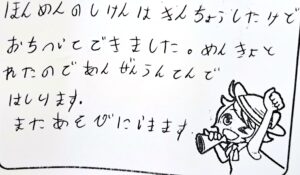 ほんめんのしけんはきんちょうしたけど
おちついてできました。めんきょと
れたのであんぜんうんてんで
はしります。
またあそびにいきます。